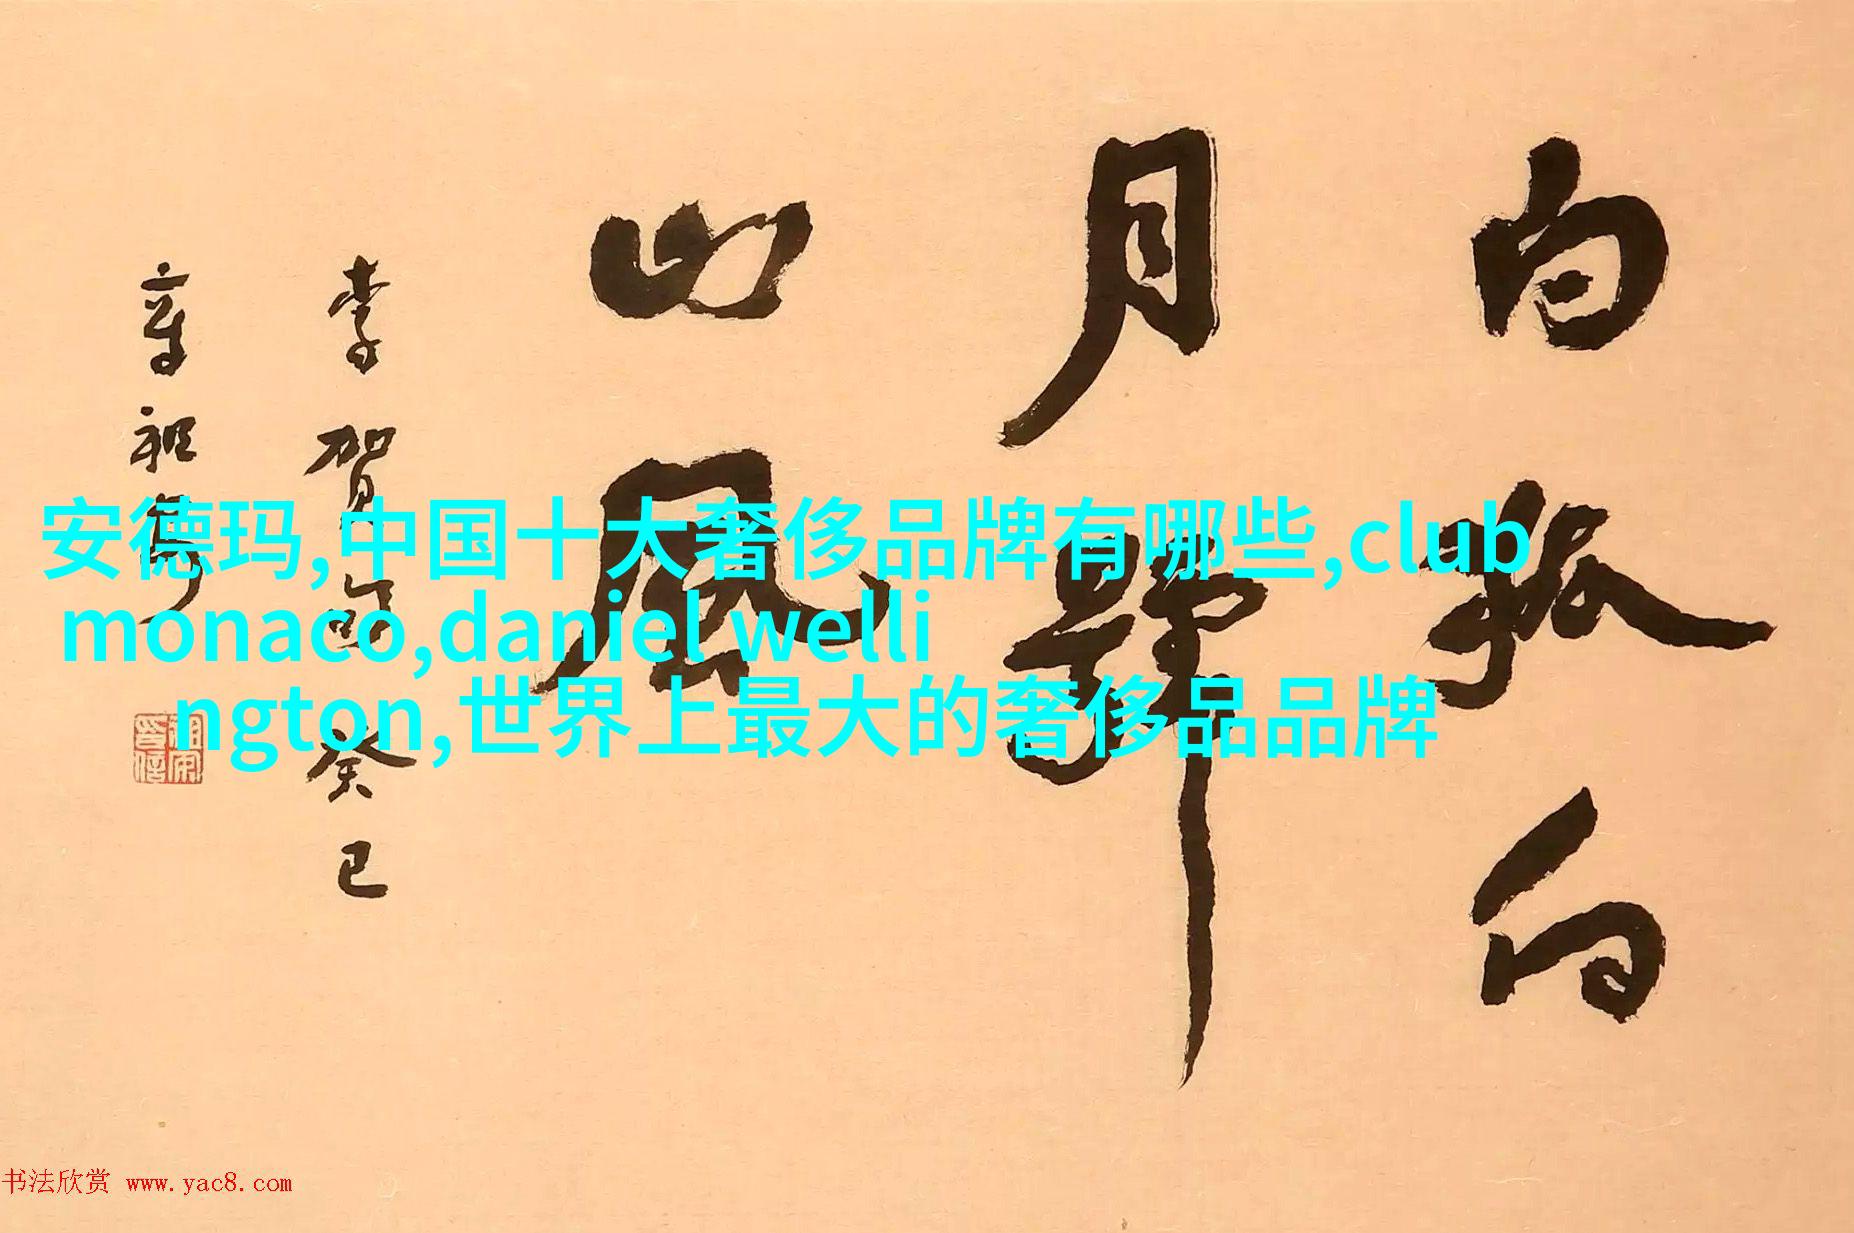 白狐向
月號
山風
李賀句癸巳
章祖
安德玛,中国十大奢侈品牌有哪些,club
monaco,daniel welli
ngton,世界上最大的奢侈品品牌
书法欣赏 www.yac8.com